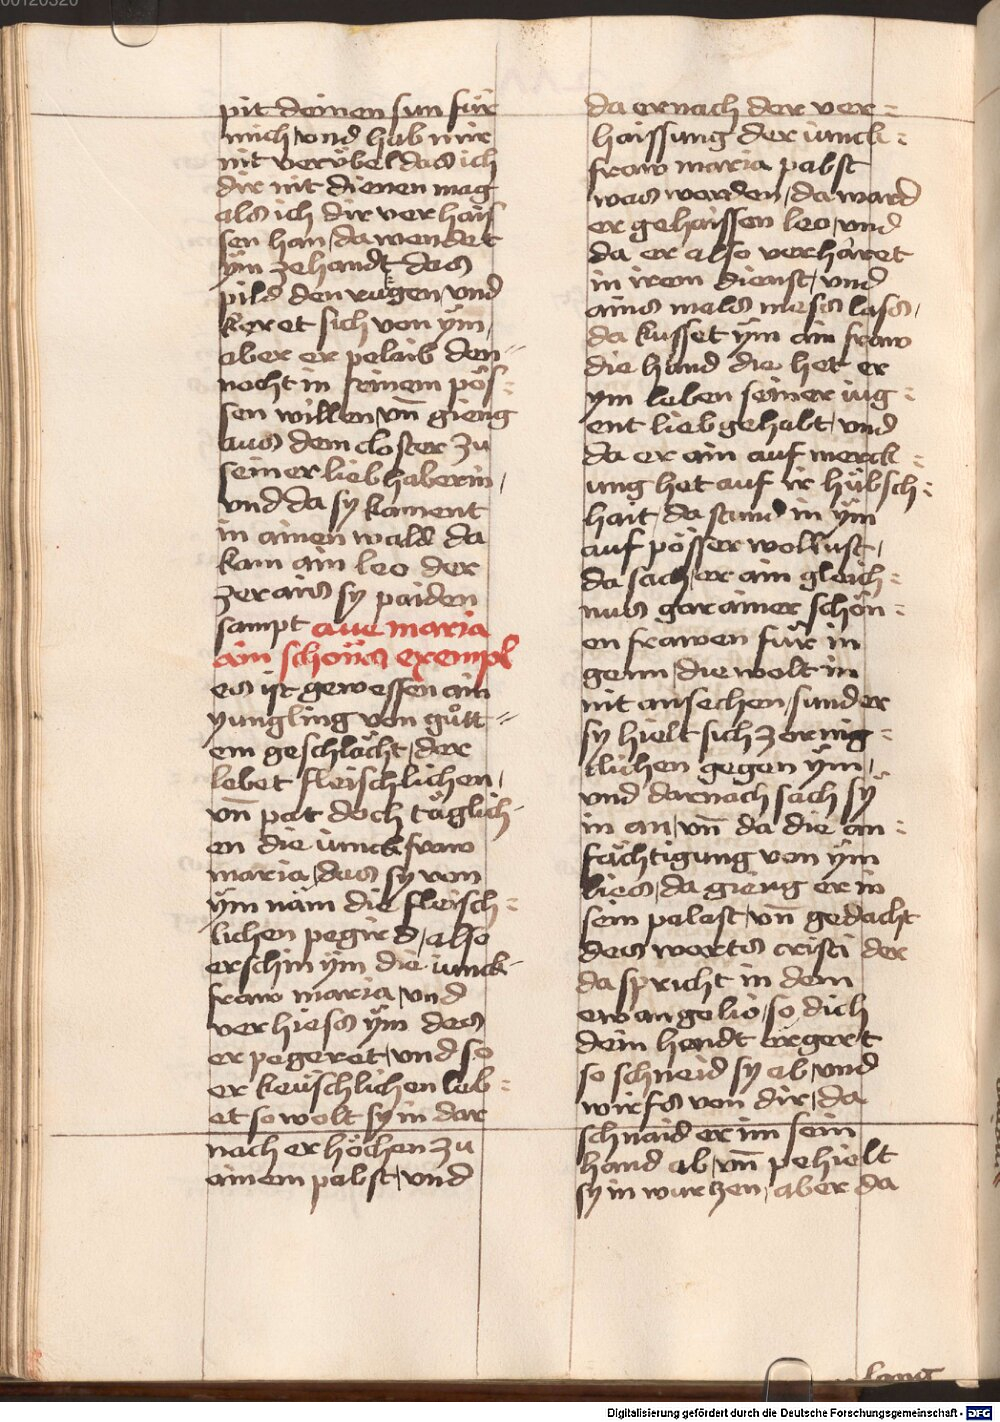 pit deinen sun für
mich vnd hab mir
nit verübel das ich
dir nit dienen mag
als ich dir verhais
sen han, da wendet
ÿm zehandt das
pild den rugen, vnd
keret sich von ÿm,
aber er pelaib den=
nocht in seinem pös=
sen willen, vn̄ gieng
aus dem closter zu
seiner liebhaberin,
vnd da sy kament
in ainen wald da
kam ain leo der
zerais sy paiden
sampt aue maria
ain schöns exempl
es ist gewessen ain
yungling von gůtt=
em geschlächt, der
lebet fleischlichen,
vn̄ pat doch täglich=
en die iunckfraw
maria, das sy vom
ÿm näm die fleisch=
lichen pegird, also
erschin ÿm die iunck=
fraw maria, vnd
verhiess ÿm des
er pegeret, vnd so
er keüschlichen leb=
et so wolt sy in dar
nach erhöchen zu
ainem pabst, vnd
da ernach der ver=
haissung der iunck=
fraw maria pabst
was worden, da ward
er gehaissen leo, vnd
da er also verharet
in irem dienst, vnd
ains mals mess lass,
da kusset ÿm ain fraw
die hand die het er
ym leben seiner iug=
ent lieb gehabt, vnd
da er ain auf merck=
ung het auf ir hübsch=
hait, da stund in ÿm
auf pösser wollust,
da sach er ain gleich=
nus gar ainer schön=
en frawen für in
genn die wolt in
nit ansechen, sunder
sy hielt sich zornig=
clichen gegen ÿm,
vnd darnach sach sy
in an, vn̄ da die an=
fächtigung von ÿm
lies, da gieng er in
sein palast, vn̄ gedacht
des worts cristi der
da spricht in dem
ewangelio, so dich
dein hendt ergert
so schneid sy ab, vnd
wirfs von dir, da
schnaid er im sein
hand ab, vn̄ pehielt
sy in wurtzen, aber da